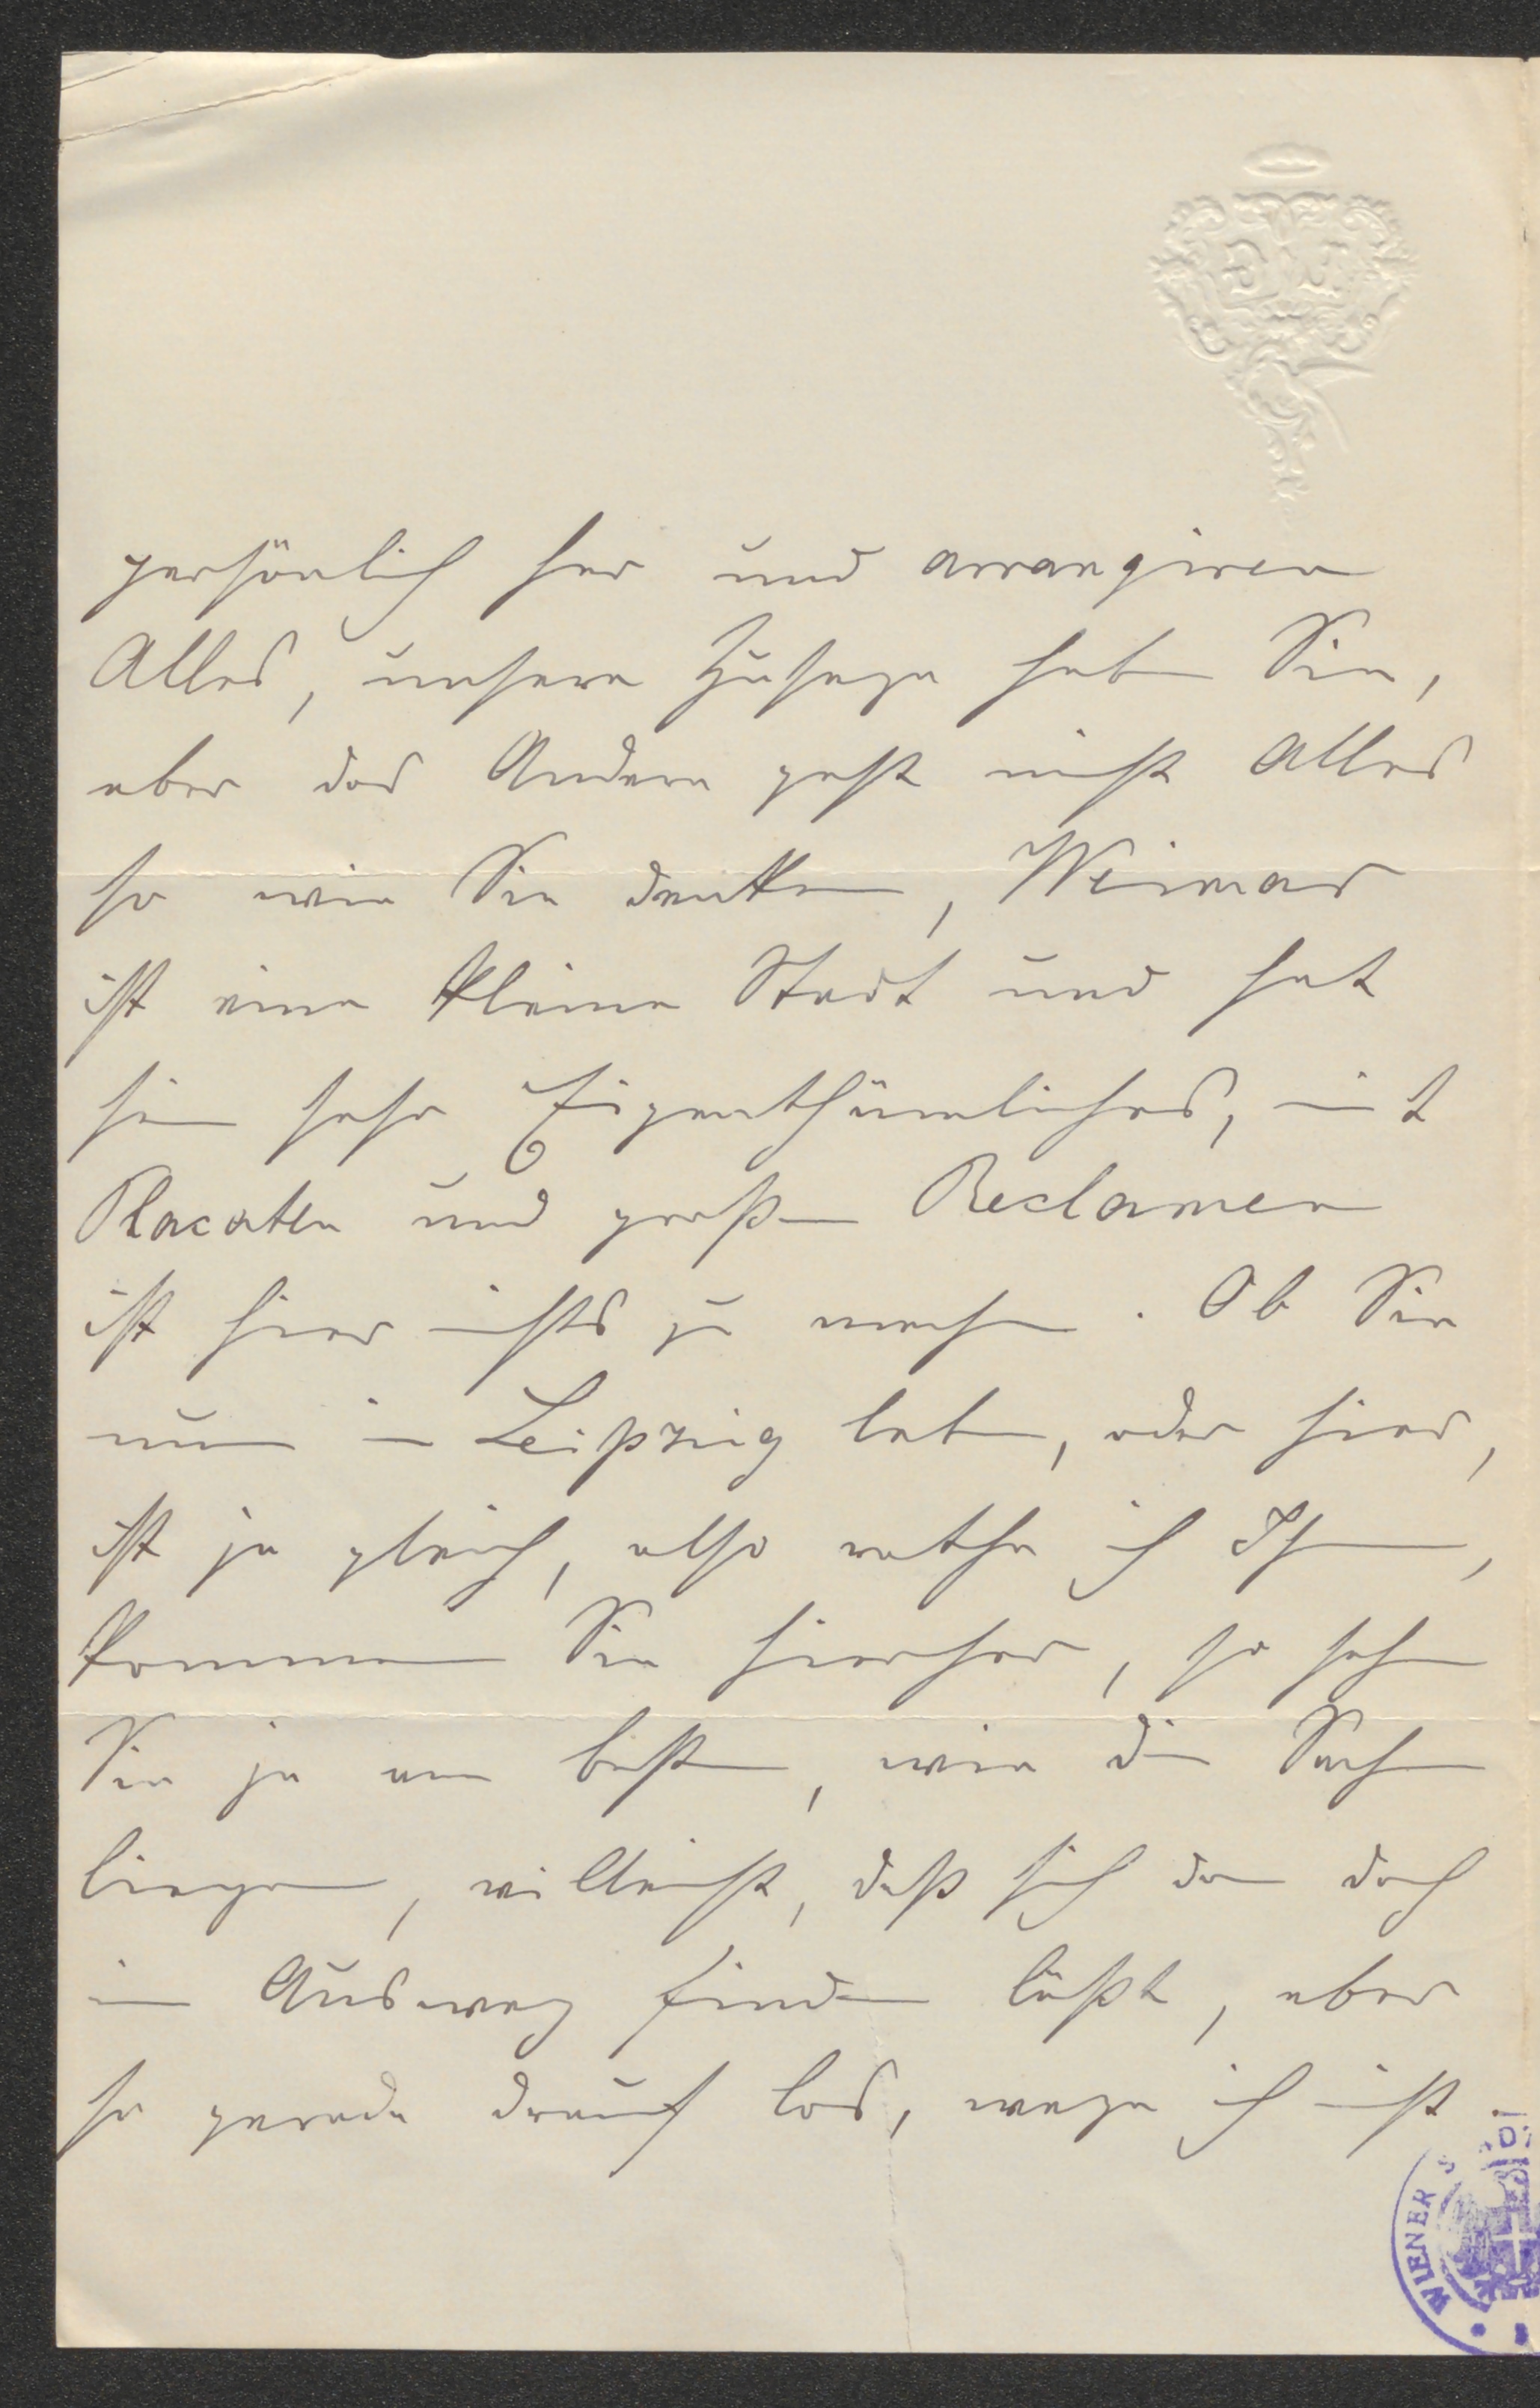 persönlich her und arrangiren
Alles, unsere Zusage haben Sie,
aber das Andere geht nicht Alles
so wie Sie denken, Weimar
ist eine kleine Stadt und hat
sein sehr Eigenthümliches, mit
Placaten und großen Reclamen
ist hier nichts zu machen. Ob Sie
nun in Leipzig leben, oder hier,
ist ja gleich, also rathe ich Ihnen,
kommen Sie hierher, so sehen
Sie ja am besten, wie die Sachen
liegen, villeicht, daß sich dann doch
ein Ausweg finden läßt, aber
so gerade drauf los, wage ich nicht
WIENER